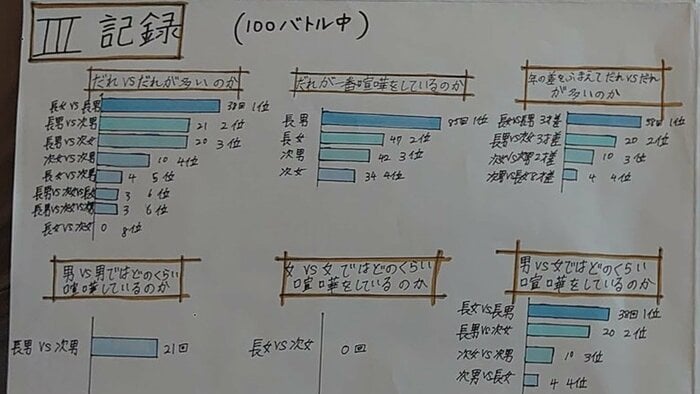 III 記録 (100バトル中)
だれVSだれが多いのか
長女VS長男 38回 1位
長男VS次男 21 2位
長男VS次女 20 3位
次女VS次男 10 4位
長女VS次男 4 5位
長男VS次女VS長女 3 6位
長男VS次女VS次男 3 6位
長女VS次女 0 8位
だれが一番喧嘩をしているのか
長男 85回 1位
長女 47 2位
次男 42 3位
次女 34 4位
年の差をふまえてだれVSだれ
が多いのか
長女VS長男 3才差 58回 1位
長男VS次女 3才差 20 2位
次女VS次男 2才差 10 3位
次男VS長女 4 4位
男VS男ではどのくらい
喧嘩しているのか
長男VS次男 21回
女VS女ではどのくらい
喧嘩をしているのか
長女VS次女 0回
男VS女ではどのくらい
喧嘩をしているのか
長女VS長男 38回 1位
長男VS次女 20 2位
次女VS次男 10 3位
次男VS長女 4 4位